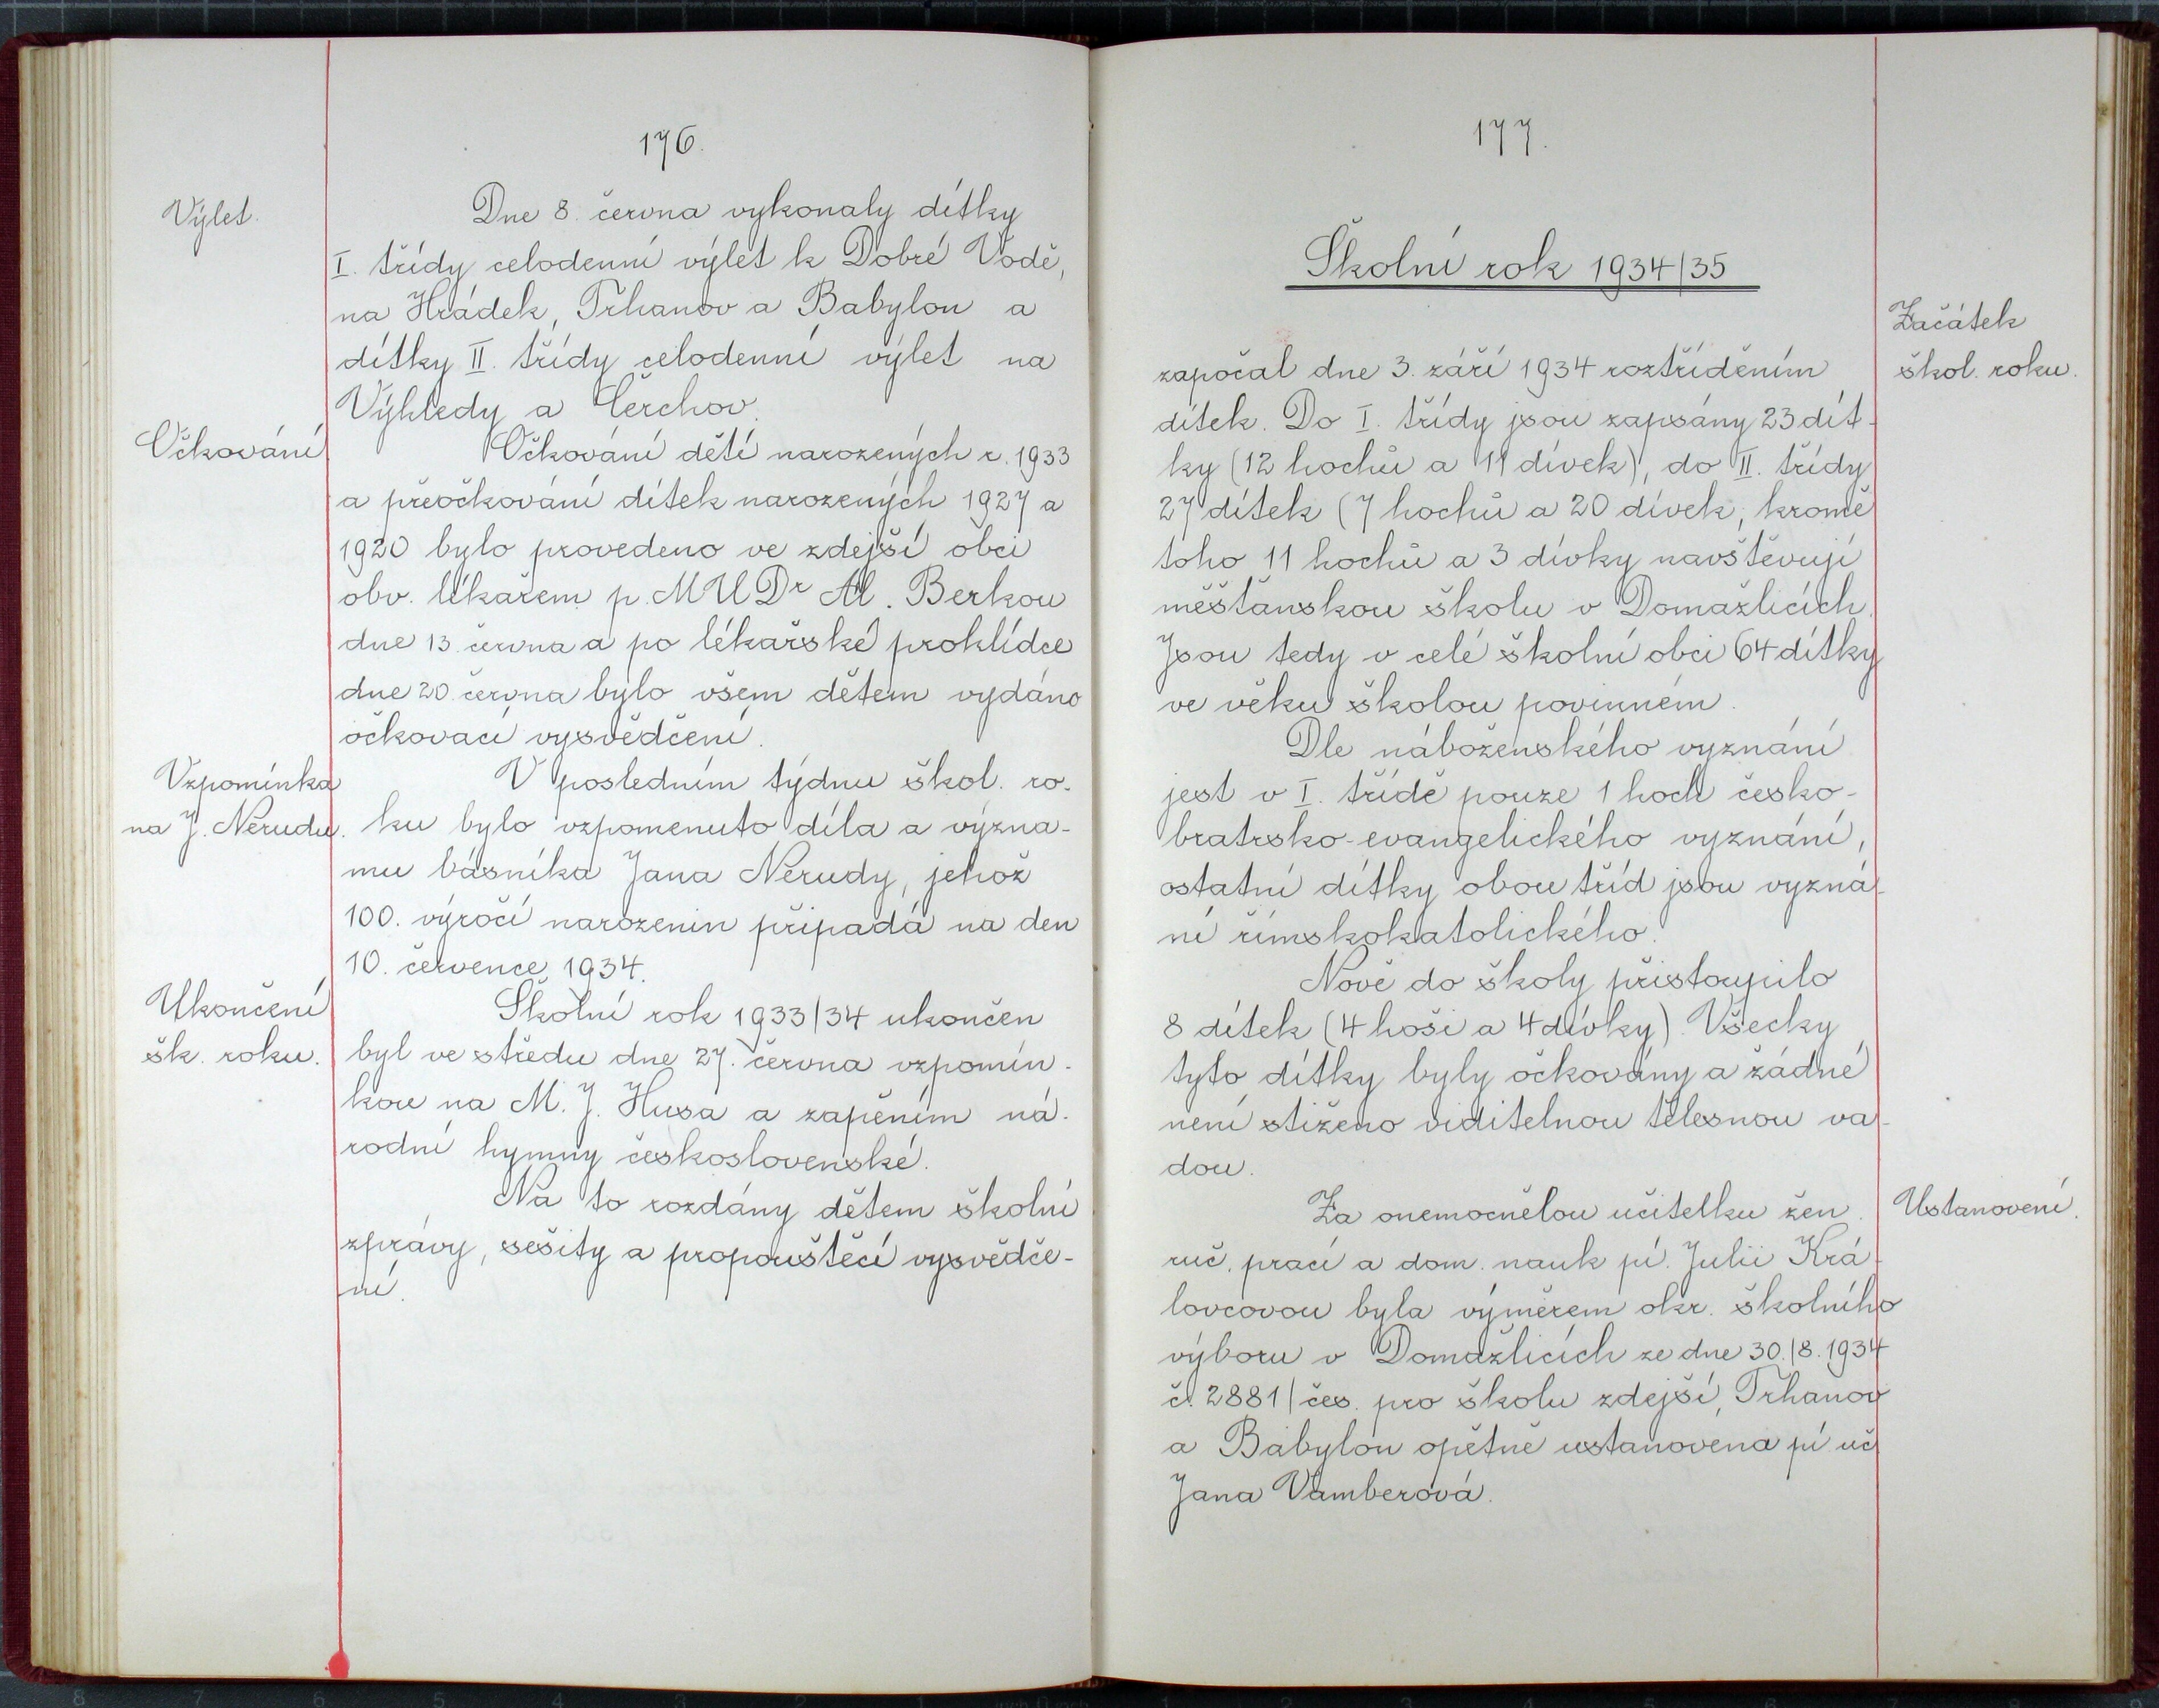 176.
Výlet.
Dne 8. června vykonaly dítky
I. třídy celodenní výlet k Dobré Vodě,
na Hrádek, Trhanov a Babylon a
dítky II. třídy celodenní výlet na
Výhledy a Čerchov.
Očkování
Očkování dětí narozených r. 1933
a přeočkování dítek narozených 1927 a
1920 bylo provedeno ve zdejší obci
obv. lékařem p. MUDr Al. Berkou
dne 13. června a po lékařské prohlídce
dne 20. června bylo všem dětem vydáno
očkovací vysvědčení.
Vzpomínka
na J. Nerudu.
V posledním týdnu škol. ro-
ku bylo vzpomenuto díla a význa-
mu básníka Jana Nerudy, jehož
100. výročí narozenin připadá na den
10. července 1934.
Ukončení
šk. roku.
Školní rok 1933/34 ukončen
byl ve středu dne 27. června vzpomín-
kou na M. J. Husa a zapěním ná-
rodní hymny československé.
Na to rozdány dětem školní
zprávy, sešity a propouštěcí vysvědče-
ní.
177.
Školní rok 1934/35
Začátek
škol. roku.
započal dne 3. září 1934 roztříděním
dítek. Do I. třídy jsou zapsány 23 dít-
ky (12 hochů a 11 dívek), do II. třídy
27 dítek (7 hochů a 20 dívek, kromě
toho 11 hochů a 3 dívky navštěvují
měšťanskou školu v Domažlicích.
Jsou tedy v celé školní obci 64 dítky
ve věku školou povinném.
Dle náboženského vyznání
jest v I. třídě pouze 1 hoch česko-
bratrsko-evangelického vyznání,
ostatní dítky obou tříd jsou vyzná-
ní římskokatolického.
Nově do školy přistoupilo
8 dítek (4 hoši a 4 dívky). Všecky
tyto dítky byly očkovány a žádné
není stiženo viditelnou tělesnou va-
dou.
Ustanovení.
Za onemocnělou učitelku žen.
ruč. prací a dom. nauk pí. Julii Krá-
lovcovou byla výměrem okr. školního
výboru v Domažlicích ze dne 30./8. 1934
č. 2881/čes. pro školu zdejší, Trhanov
a Babylon opětně ustanovena pí uč
Jana Vamberová.